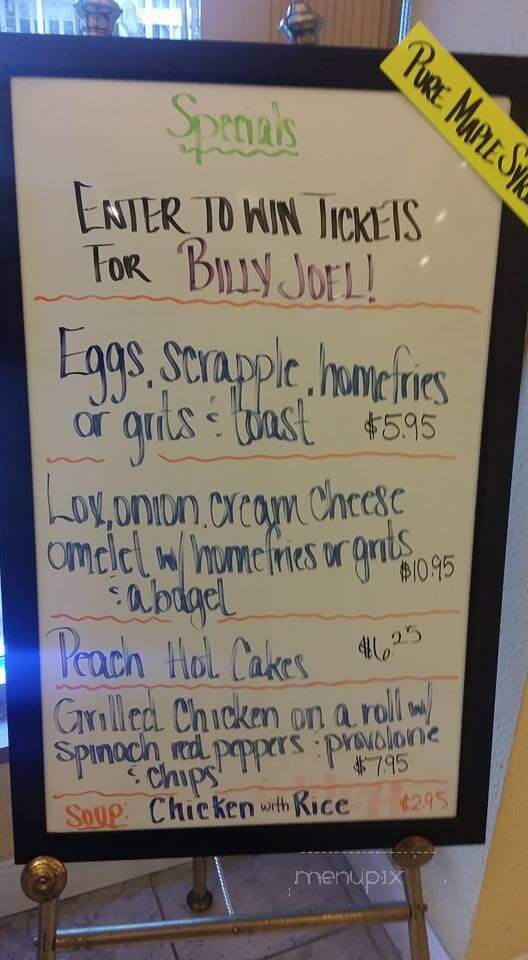 Specials
PURE MAPLE SY
ENTER TO WIN TICKETS
FOR BILLY JOEL!
Eggs, scrapple, homefries
or grits & toast $5.95
Lox, onion, cream cheese
omelet w/ homefries or grits
$10.95
& a bagel
Peach Hot Cakes $6.25
Grilled Chicken on a roll w/
spinach red peppers & provolone
& chips $7.95
SOUP: Chicken with Rice $2.95
menupix